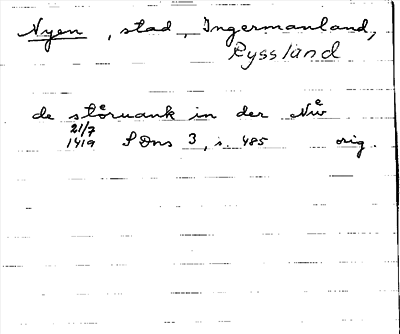 Nyen, stad, Ingermanland,
Ryssland
de stoͤruank in der Nuͤ
21/7
1419 SDns 3, s. 485 orig.